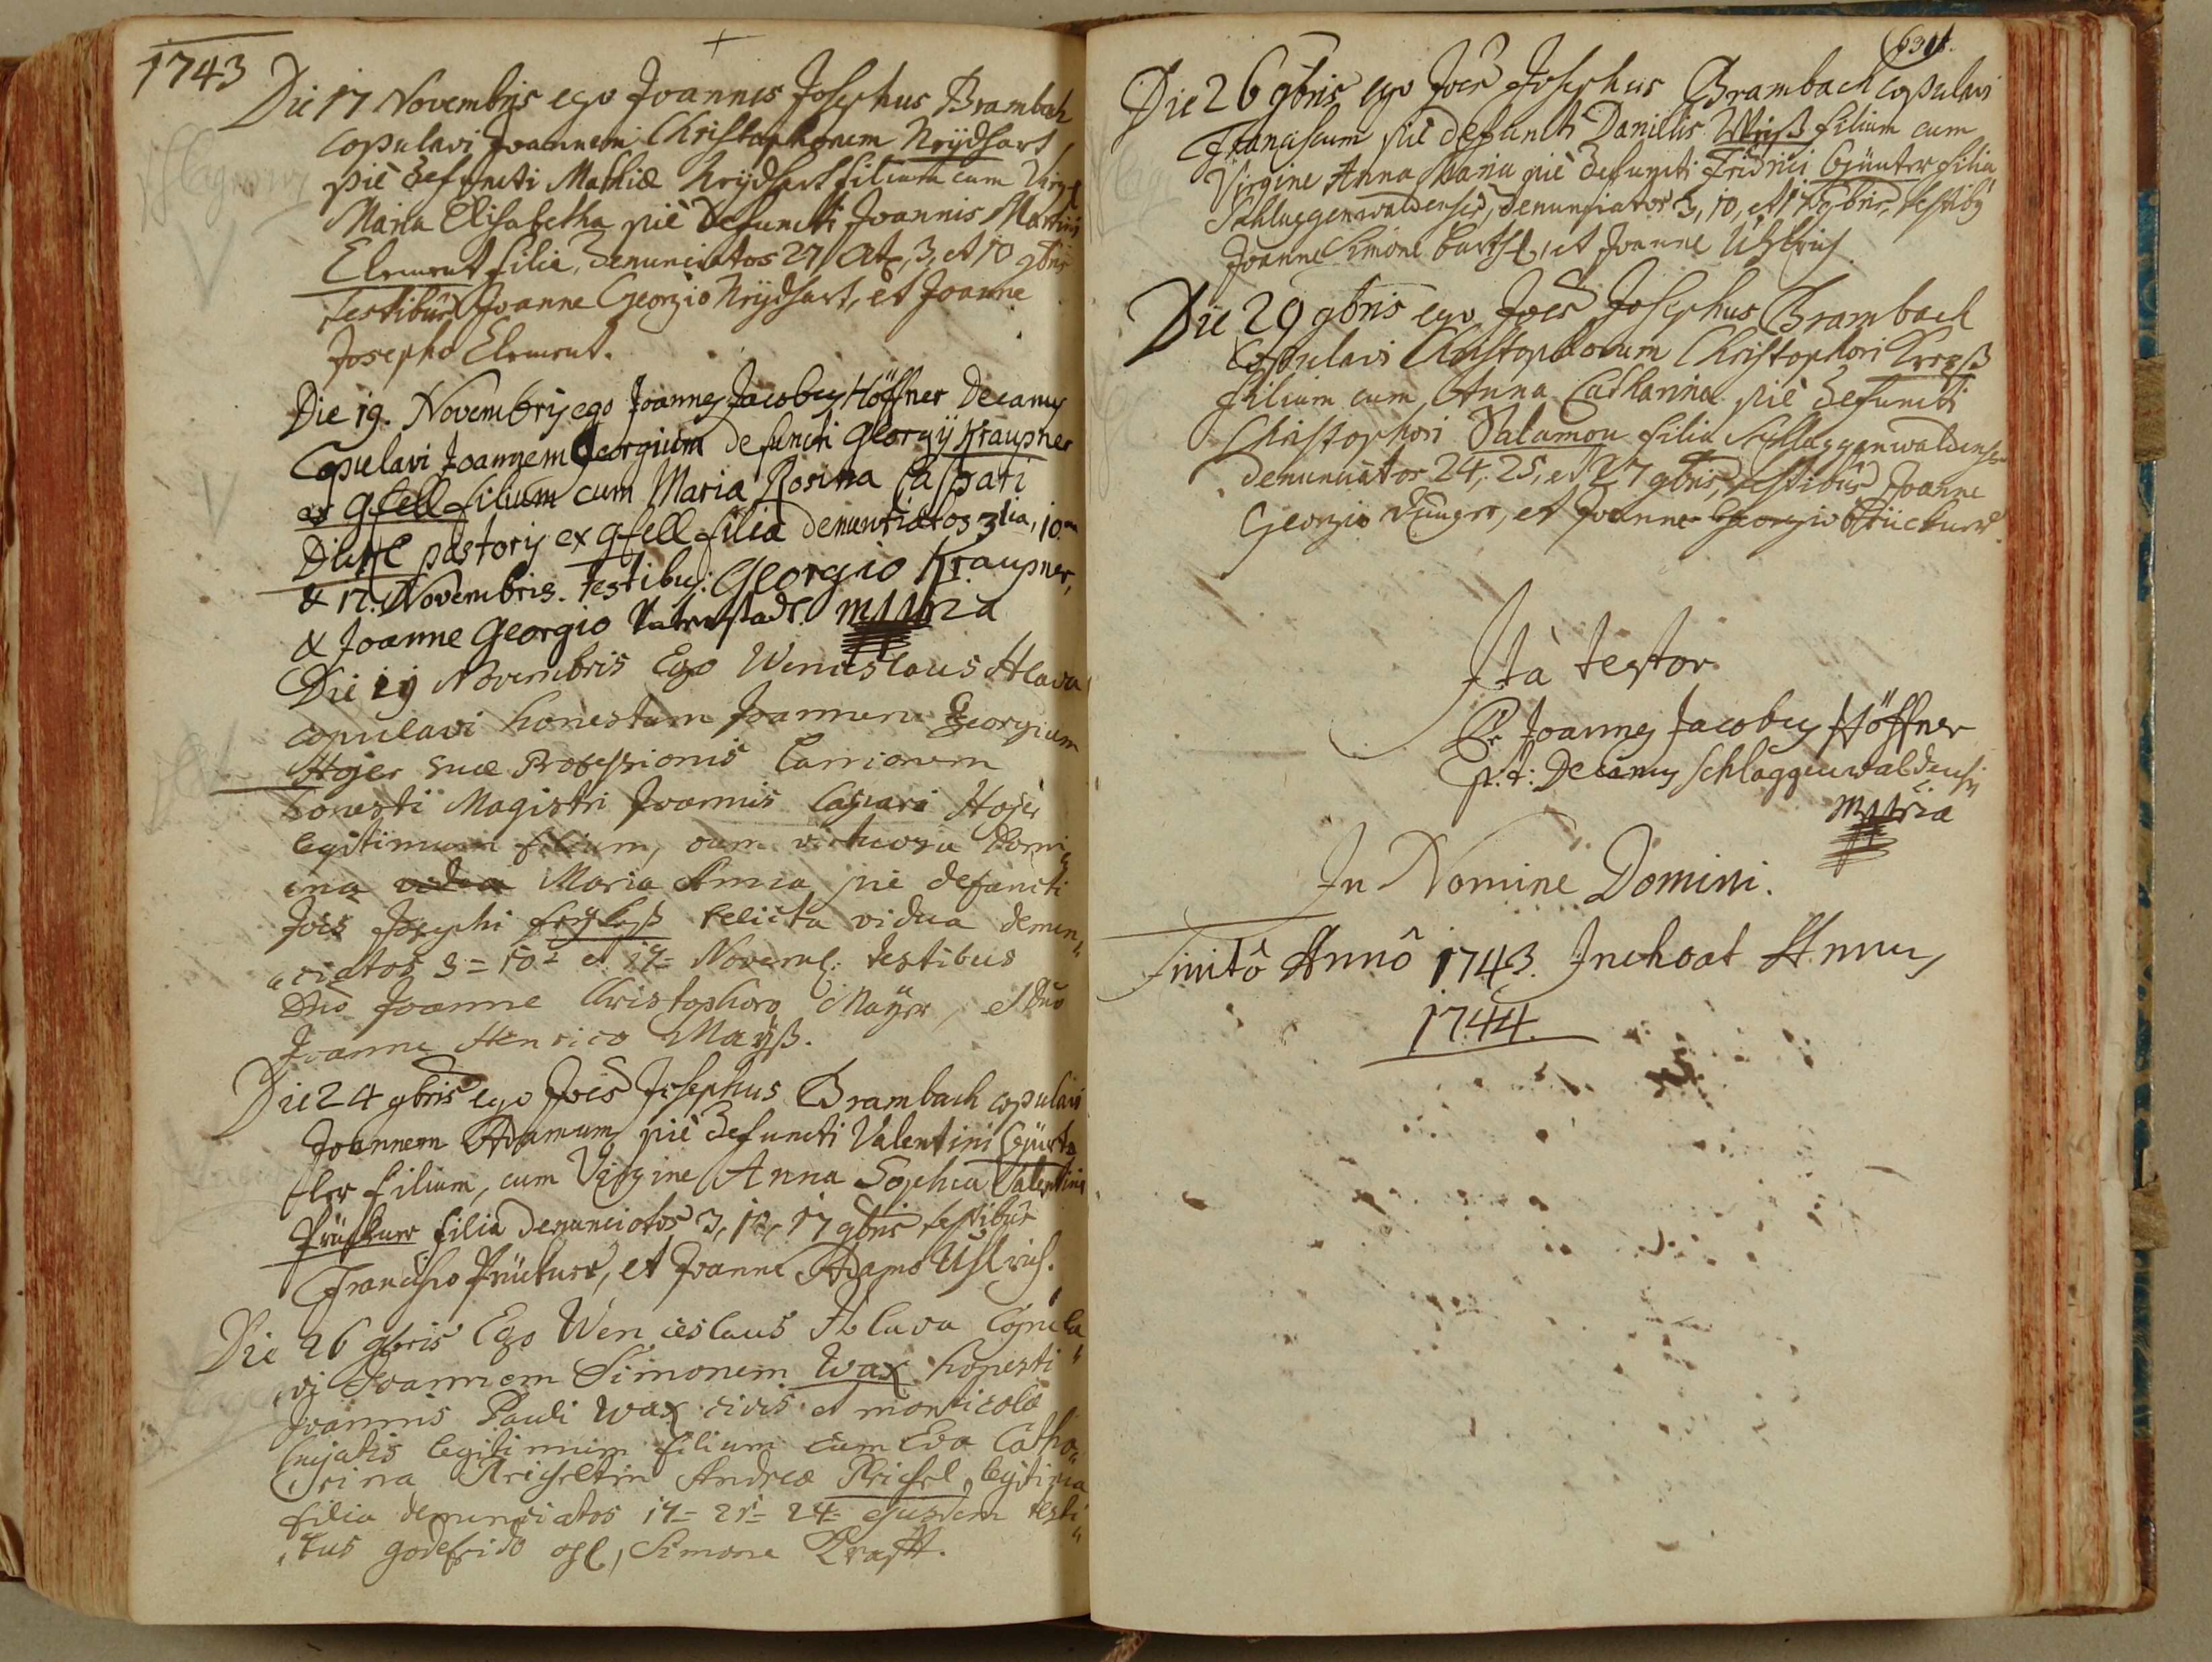 1743
Die 17 Novembris ego Joannes Josephus Brambach
copulavi Joannem Christophorum Neÿdhart
piè defuncti Mathiæ Neÿdhart filium cum Virge
Maria Elisabetha piè defuncti Joannis Martini
Element filia, denunciatos 27 8t, 3, et 10 9bris
testibus Joanne Georgio Neÿdhart, et Joanne
Josepho Element.
Die 19. Novembris ego Joannes Jacobus Höffner Decanus
Copulavi Joannem Georgium defuncti Georgÿ Kraupner
ex gfell filium cum Maria Rosina Caspari
pastoris ex gfell filia denuntiatos 3tia, 10ma
& 17. Novembris. testibus: Georgio Kraupner,
& Joanne Georgio mppria
Die 19 Novembris Ego Wenceslaus Hlava
copulavi honestum Joannem Georgium
Hojer suæ Professionis Lanionem
honesti Magistri Joannis Caspari Hojer
legitimum filium, cum virtuosa Domi
ina Maria Anna pie defuncti
Jois Josephi relicta vidua denun
ciatos 3 = 10 = et 17 = Novemb: testibus
Dno Joanne Christophoro Maÿer, et Dno
Joanne Henrico Maÿß.
Die 24 9bris ego Joes Josephus Brambach copulavi
Joannem Adamum piè defuncti Valentini Gürt
ler filium, cum Virgine Anna Sophia Valentini
Prückner filia denunciatos 3, 10, 17 9bris testibus
Francisco Prückner, et Joanne Adamo Uhlrich.
Die 26 9bris Ego Wenceslaus Hlava Copula
vi Joannem Simonem Wax honesti
Joannis Pauli Wax civis et monticolæ
hujatis legitimum filium cum Eva Catha
rina Reicheltin Andreæ Reichel legitima
filia denunciatos 17 = 21 = 24 = ejusdem testi
bus godefrido ogl, Simone Krafft.
631.
Die 26 9bris ego Joes Josephus Brambach copulavi
Franciscum piè defuncti Danielis Weiß filium cum
Virgine Anna Maria piè defuncti Fridrici Günter filia
Schlaggenwaldenses, denunciatos 3, 10, et 17 9bris, testibus
Joanne Simone Bartsch, et Joanne Uhlrich.
Die 29 9bris ego Joes Josephus Brambach
Copulavi Christophorum Christophori Kreyß
filium cum Anna Catharina piè defuncti
Christophori Salamon filia Schlaggenwaldenses
denunciatos 24, 25, et 27 9bris, testibus Joanne
Georgio Junger, et Joanne Georgio Prückner.
Ità testor
Pr Joannes Jacobus Höffner
p. t: Decanus Schlaggenwaldensis
mppria
In Nomine Domini.
Finitô Annô 1743. Inchoat Annus
1744.